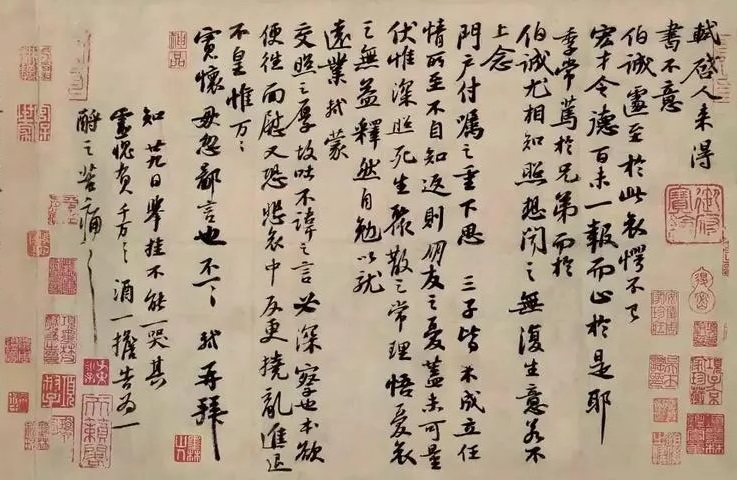 軾啓人来得
書不意
伯誠遽至於此哀愕不已
宏才令德百未一報而止於是耶
季常篤於兄弟而於
伯誠尤相知照想聞之無復生意若不
上念
門户付嘱之重下思三子皆未成立任
情所至不自知返則朋友之憂蓋未可量
伏惟深照死生聚散之常理悟憂哀
之無益釋然自勉以就
遠業軾蒙
交照之厚故吐不諱之言必深察也本欲
便往面慰又恐悲哀中反更撓亂進退
不皇惟万〻
寬懷毋忽鄙言也不一〻軾再拜
知廿九日舉挂不能一哭其
靈愧負千万〻酒一擔告為一
酹之苦痛〻